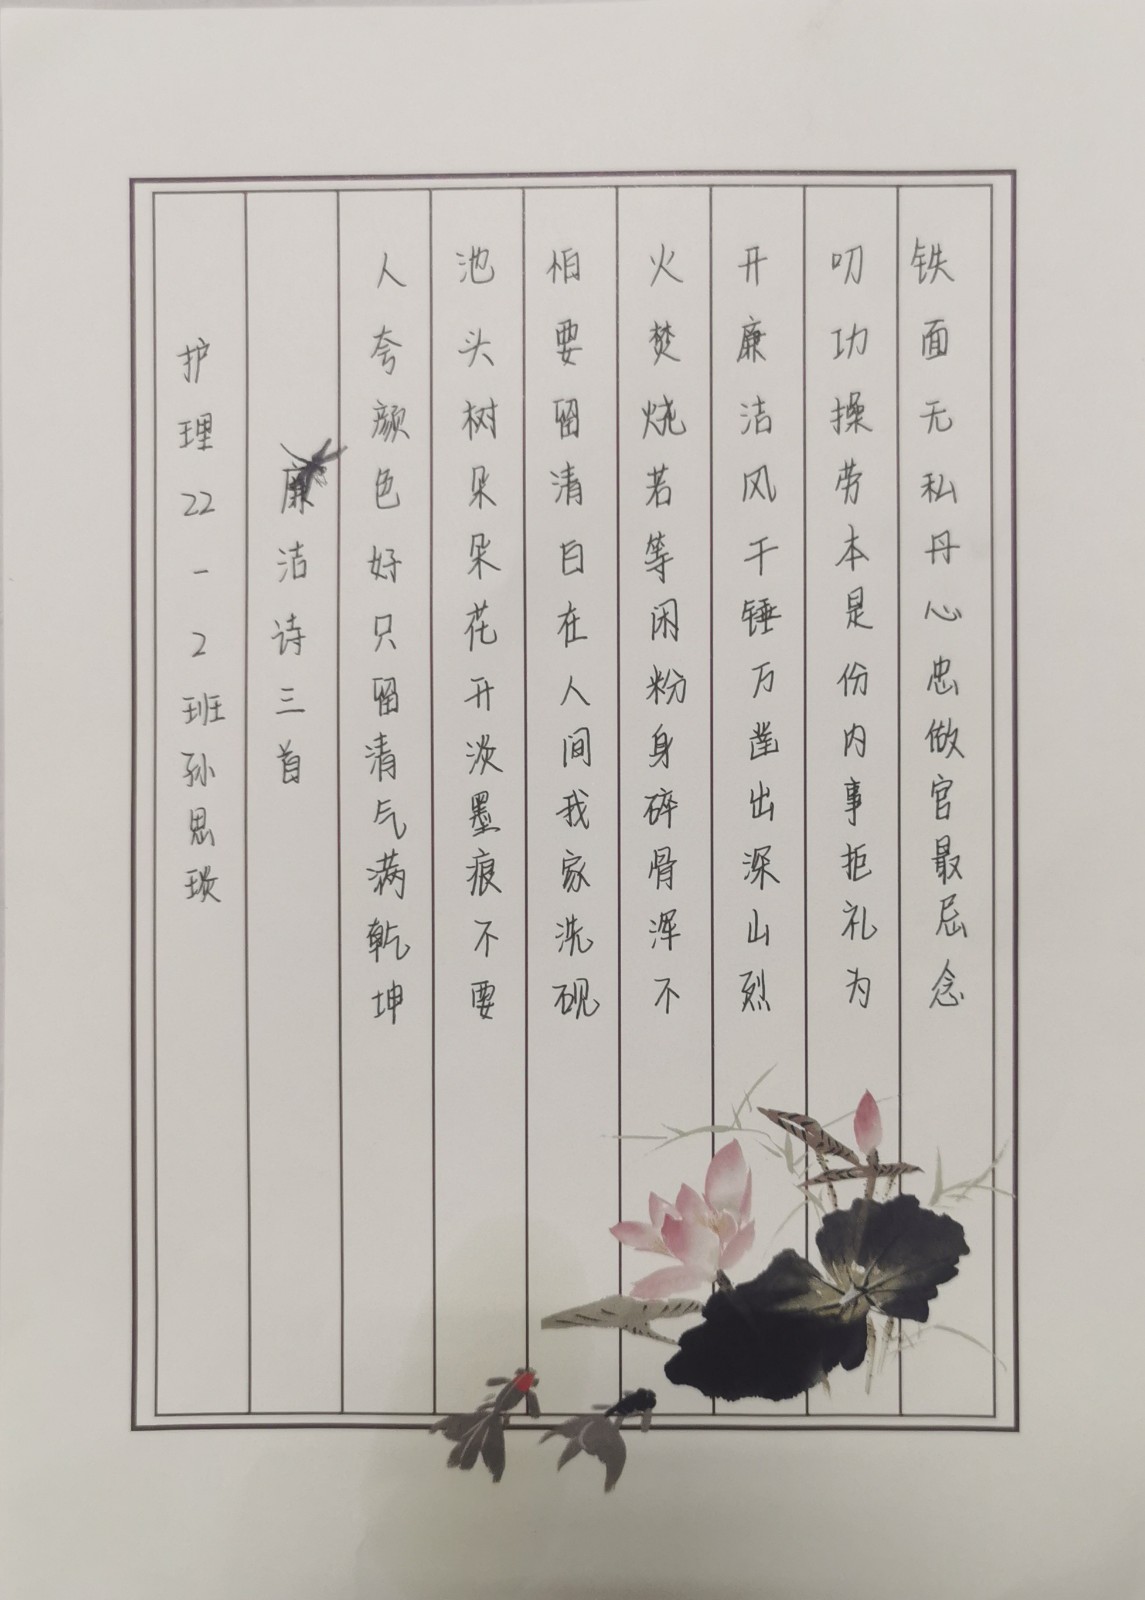 铁面无私丹心忠做官最忌念
叨功操劳本是份内事拒礼为
开廉洁风千锤万凿出深山烈
火焚烧若等闲粉身碎骨浑不
怕要留清白在人间我家洗砚
池头树朵朵花开淡墨痕不要
人夸颜色好只留清气满乾坤
廉洁诗三首
护理22-2班孙思琰